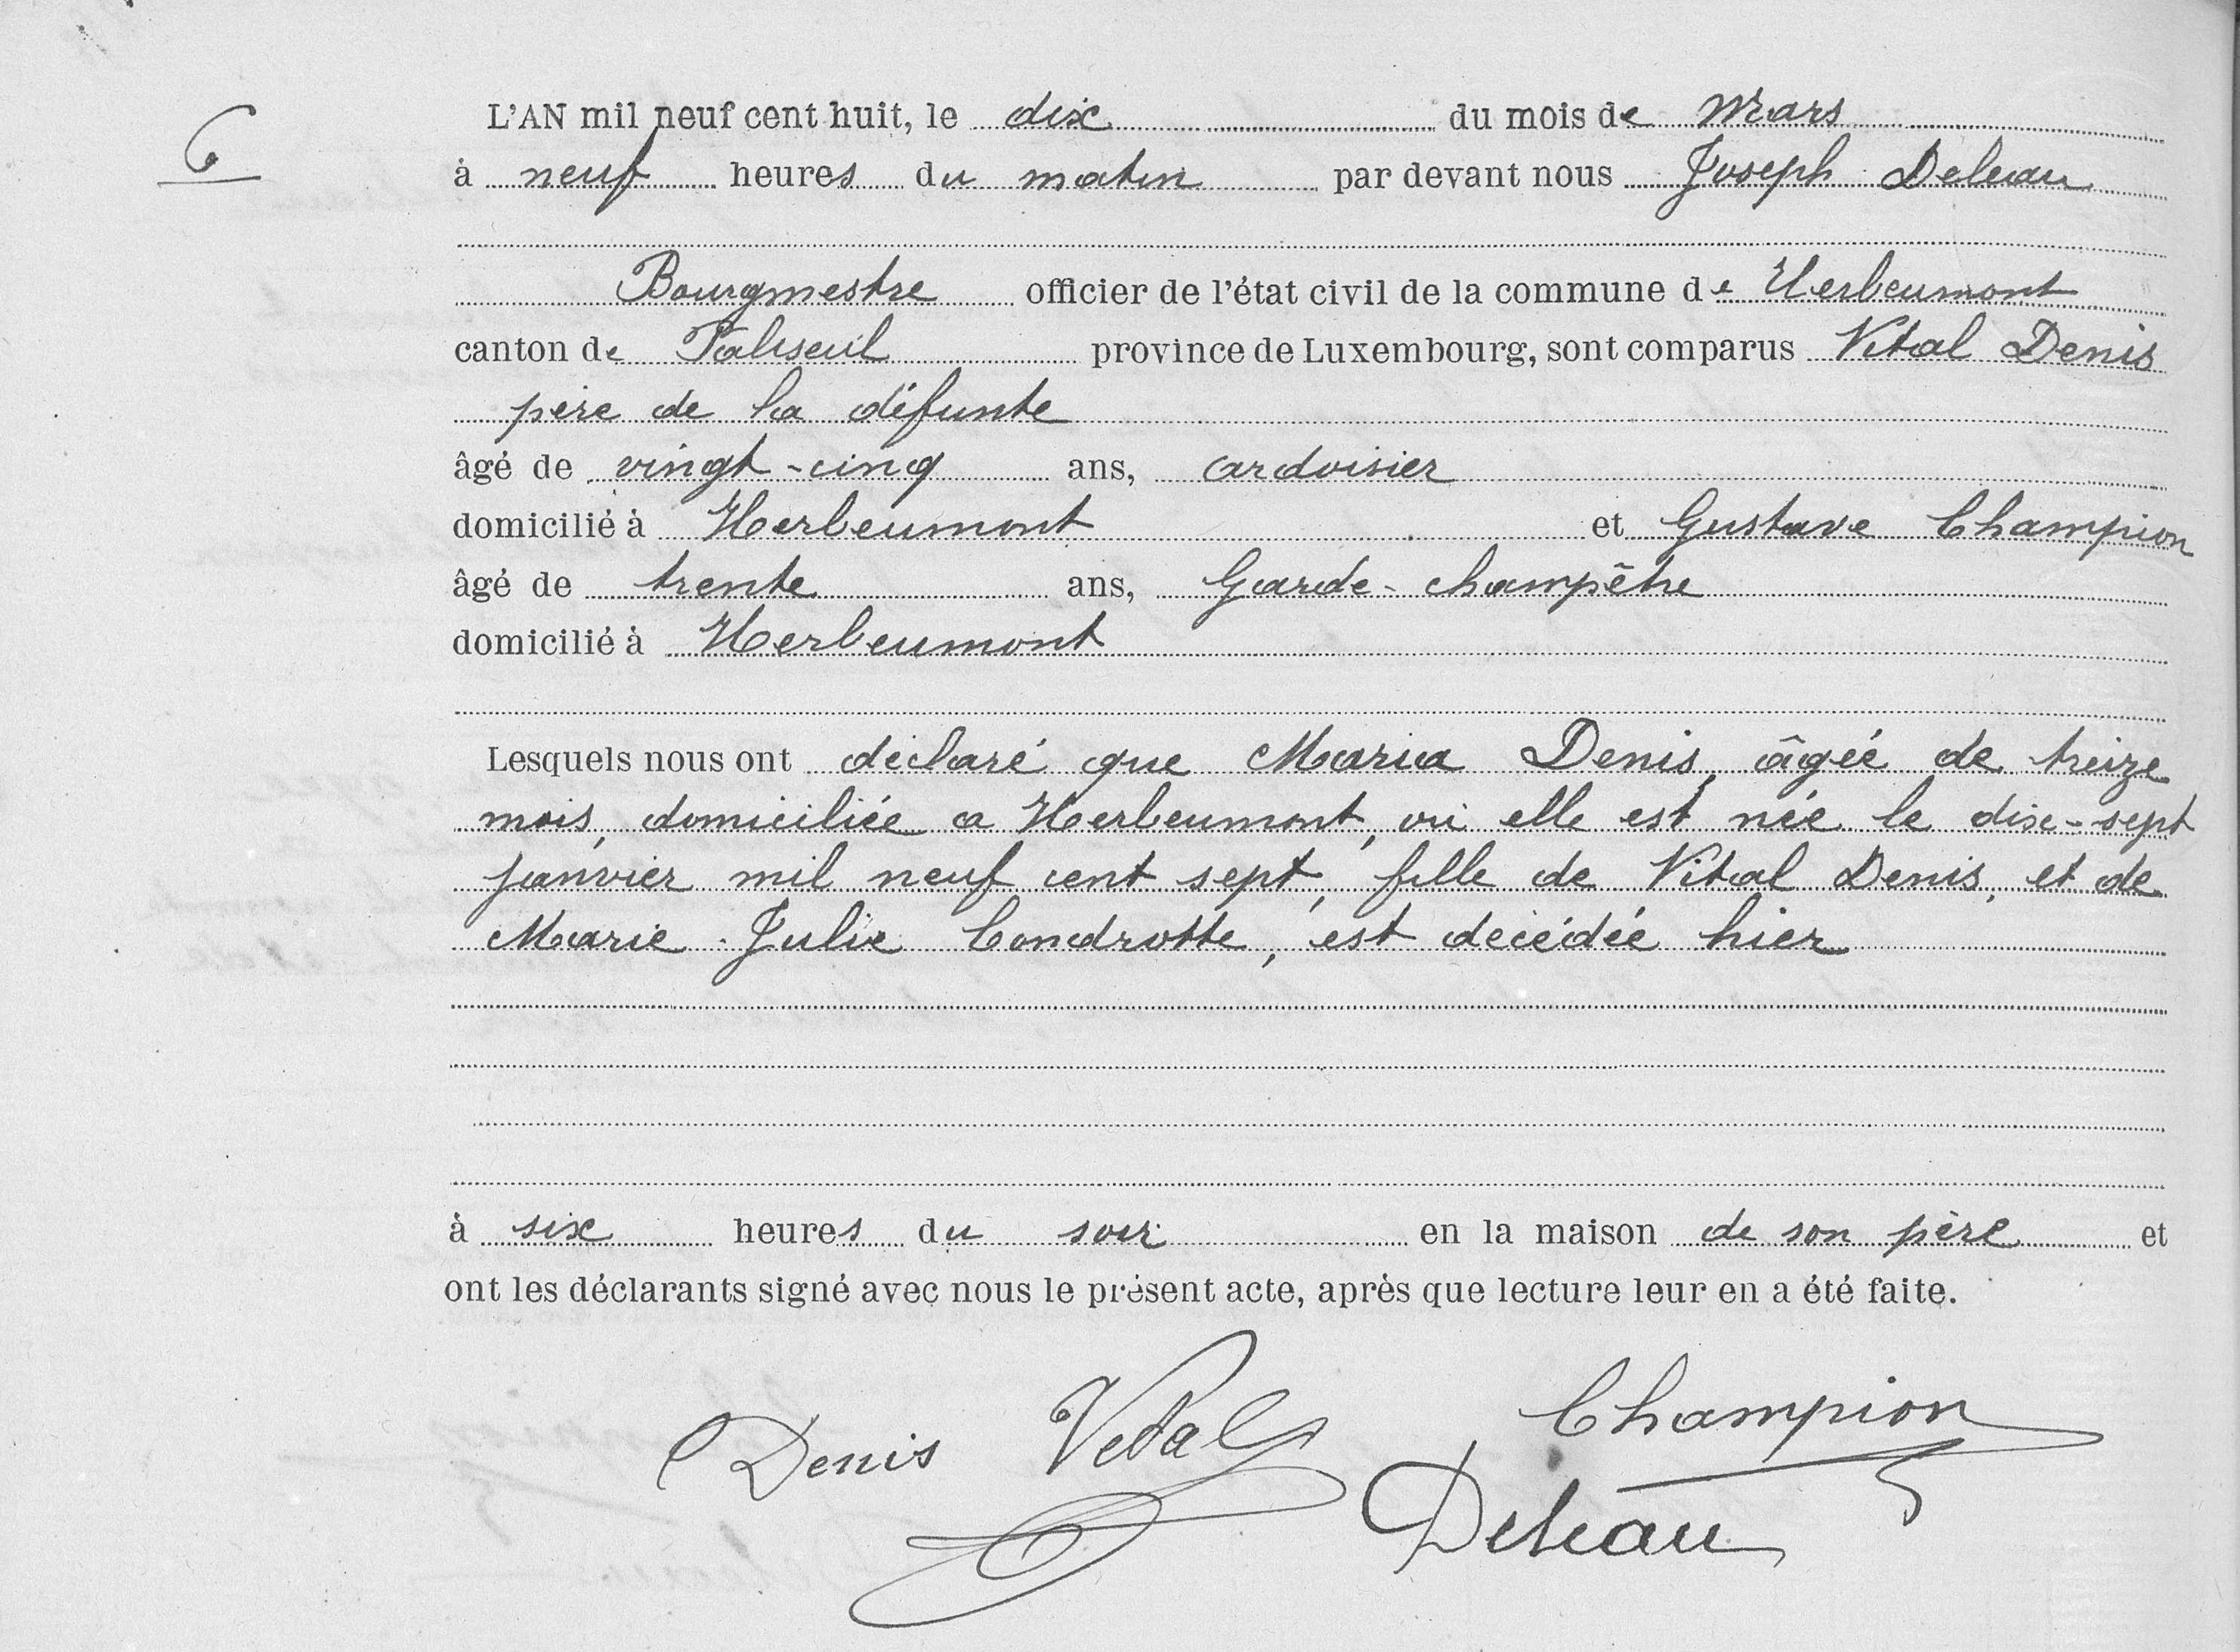 6
L'AN mil neuf cent huit, le dix du mois de Mars
à neuf heures du matin par devant nous Joseph Deleau
Bourgmestre officier de l'état civil de la commune de Herbeumont
canton de Paliseul province de Luxembourg, sont comparus Vital Denis
père de la défunte
âgé de vingt-cinq ans, ardoisier
domicilié à Herbeumont et Gustave Champion
âgé de trente ans, Garde-champêtre
domicilié à Herbeumont
Lesquels nous ont déclaré que Maria Denis, âgée de treize
mois, domiciliée a Herbeumont, où elle est née le dix-sept
janvier mil neuf cent sept, fille de Vital Denis, et de
Marie-Julie Condrotte, est décédée hier
à six heures du soir en la maison de son père et
ont les déclarants signé avec nous le présent acte, après que lecture leur en a été faite.
Denis Vital Champion
Deleau